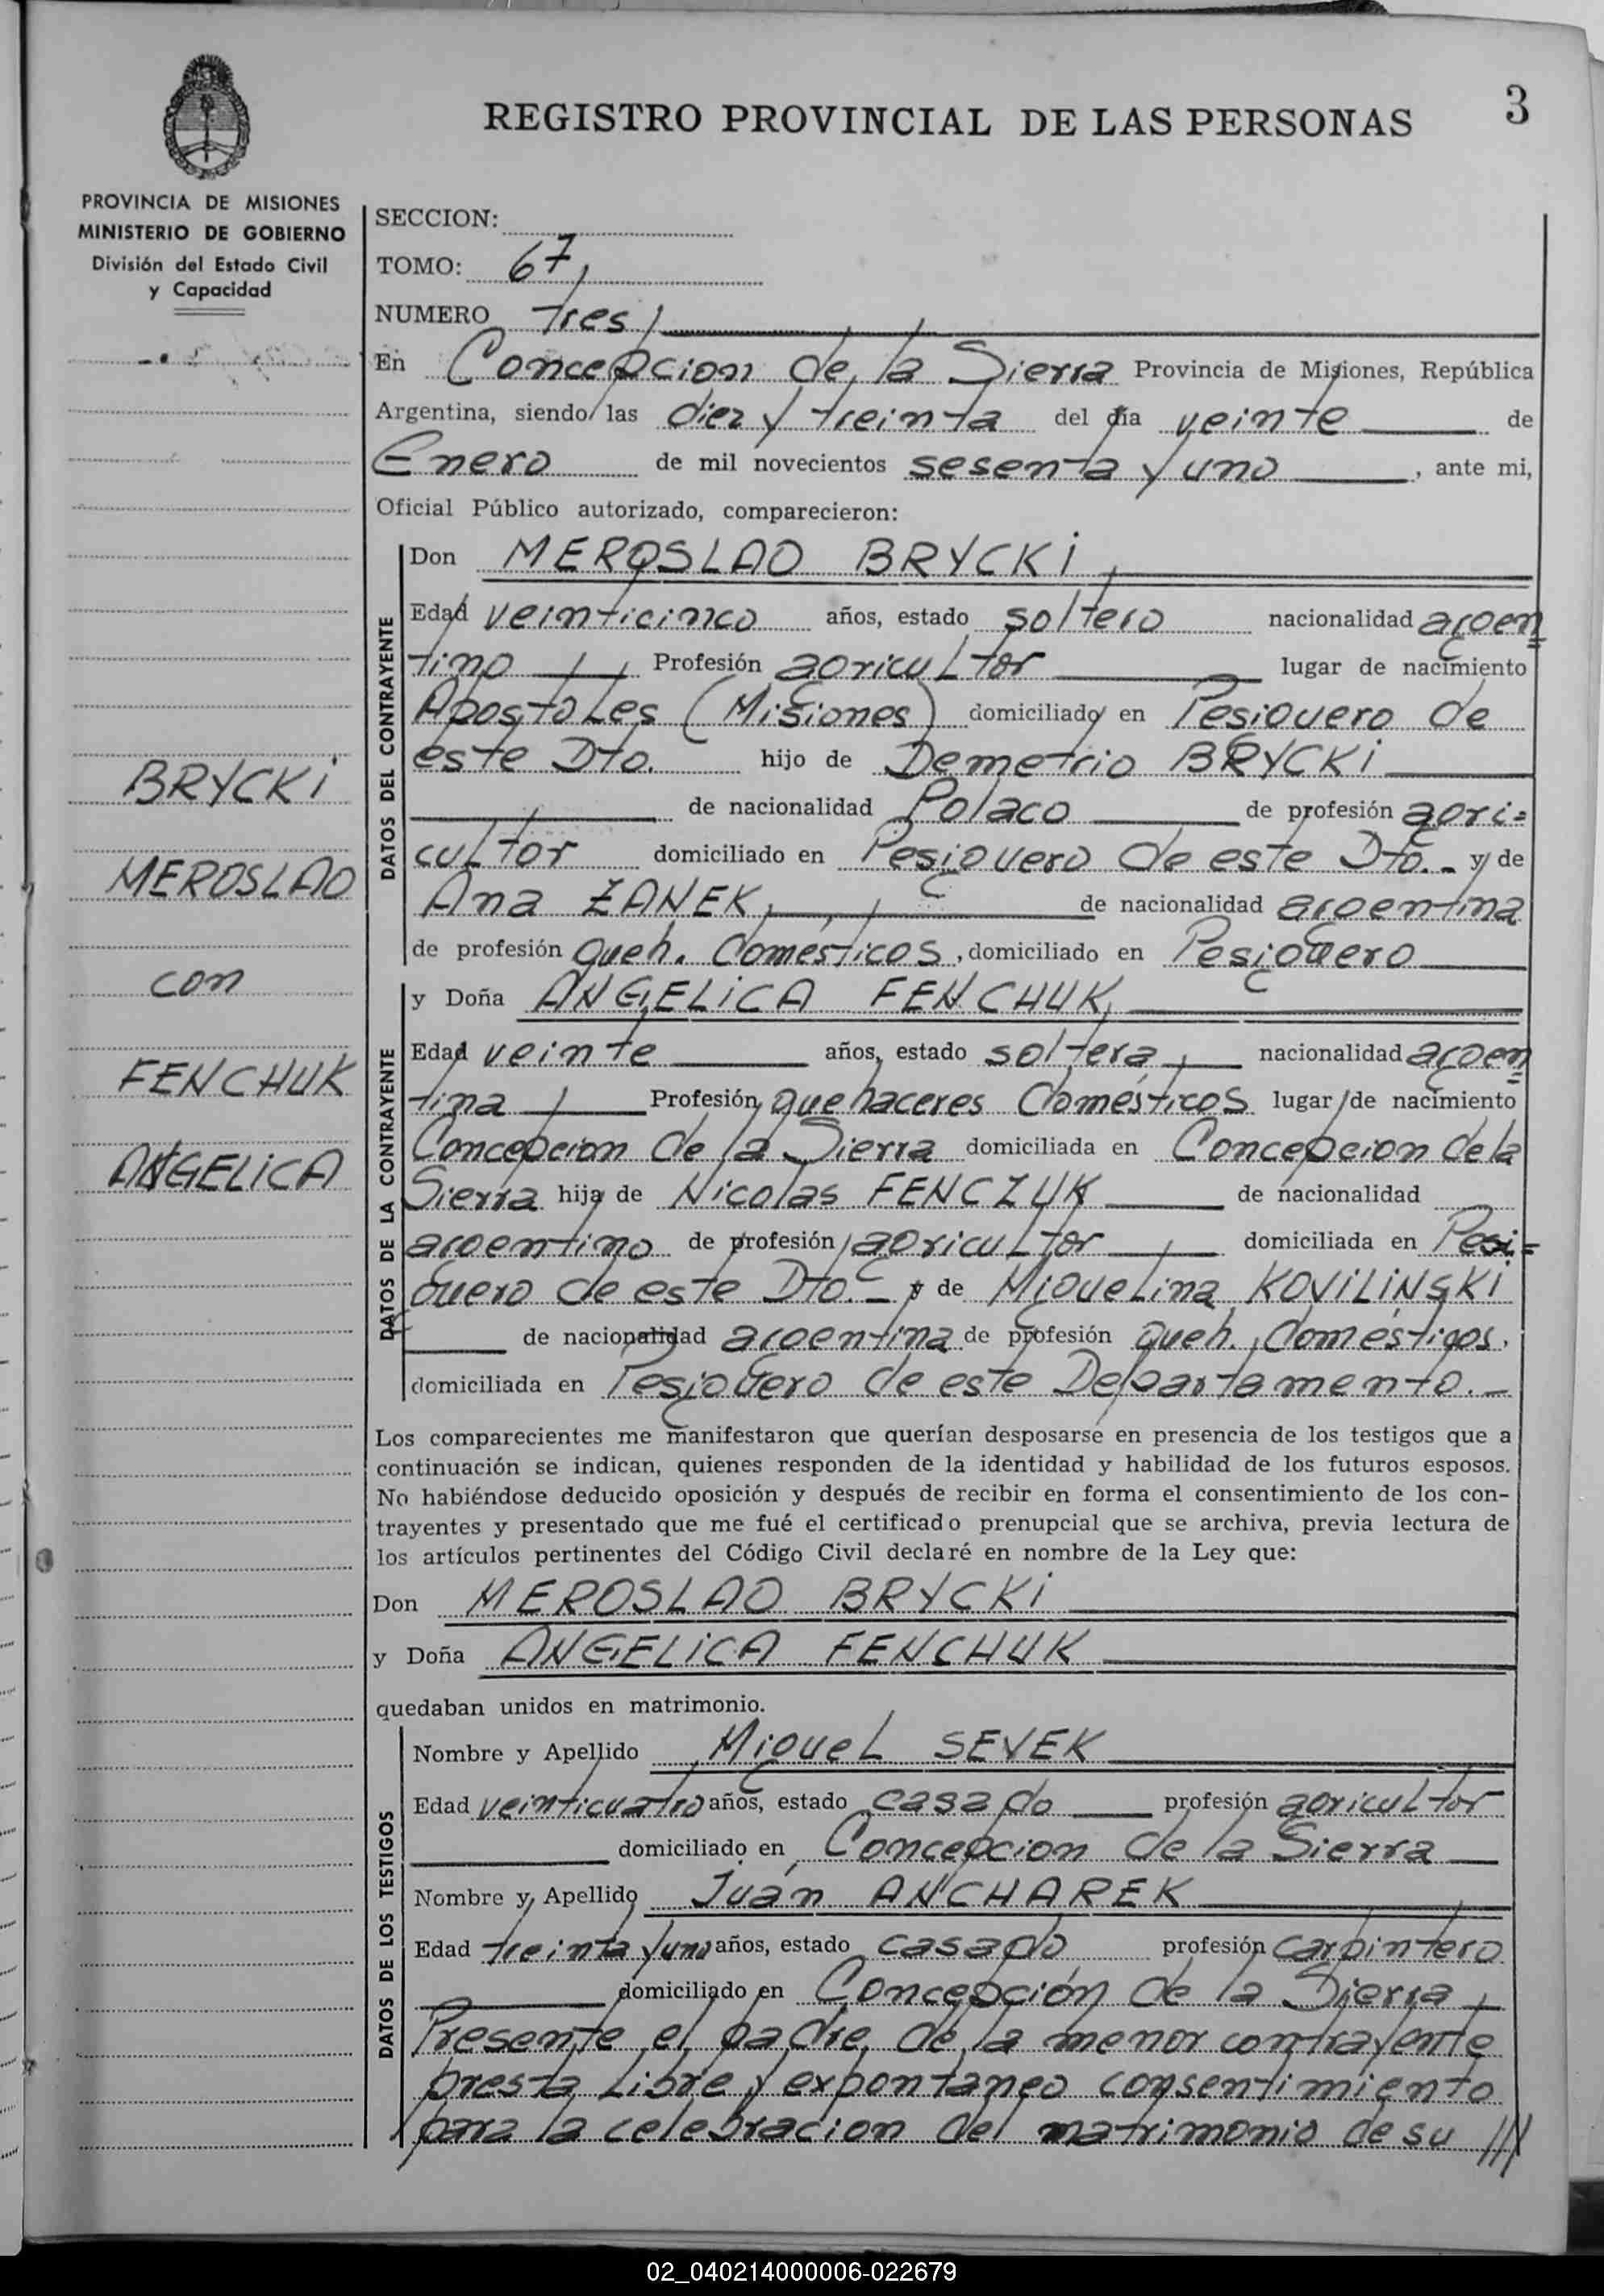 REGISTRO PROVINCIAL DE LAS PERSONAS
3
PROVINCIA DE MISIONES
MINISTERIO DE GOBIERNO
División del Estado Civil
y Capacidad
BRYCKI
MEROSLAO
con
FENCHUK
ANGELICA
SECCION:
TOMO: 67
NUMERO Tres
En Concepcion de la Sierra Provincia de Misiones, República
Argentina, siendo las diez y treinta del día veinte de
Enero de mil novecientos sesenta y uno, ante mi,
Oficial Público autorizado, comparecieron:
DATOS DEL CONTRAYENTE
Don MEROSLAO BRYCKI,
Edad veinticinco años, estado soltero nacionalidad argen=
tino Profesión agricultor lugar de nacimiento
Apostoles (Misiones) domiciliado en Pesiguero de
este Dto. hijo de Demetrio BRYCKI
de nacionalidad Polaco de profesión agri=
cultor domiciliado en Pesiguero de este Dto.- y de
Ana ZANEK, de nacionalidad argentina
de profesión queh. domésticos, domiciliado en Pesigüero
DATOS DE LA CONTRAYENTE
y Doña ANGELICA FENCHUK,
Edad veinte años, estado soltera, nacionalidad argen=
tina Profesión quehaceres domésticos lugar de nacimiento
Concepcion de la Sierra domiciliada en Concepcion de la
Sierra hija de Nicolas FENCZUK de nacionalidad
argentino de profesión agricultor domiciliada en Pesi=
guero de este Dto.- y de Miguelina KOVILINSKI
de nacionalidad argentina de profesión queh. domésticos,
domiciliada en Pesigüero de este Departamento.-
Los comparecientes me manifestaron que querían desposarse en presencia de los testigos que a
continuación se indican, quienes responden de la identidad y habilidad de los futuros esposos.
No habiéndose deducido oposición y después de recibir en forma el consentimiento de los con-
trayentes y presentado que me fué el certificado prenupcial que se archiva, previa lectura de
los artículos pertinentes del Código Civil declaré en nombre de la Ley que:
Don MEROSLAO BRYCKI
y Doña ANGELICA FENCHUK
quedaban unidos en matrimonio.
DATOS DE LOS TESTIGOS
Nombre y Apellido Miguel SEVEK
Edad veinticuatro años, estado casado profesión agricultor
domiciliado en Concepcion de la Sierra
Nombre y Apellido Juan ANCHAREK
Edad treinta y uno años, estado casado profesión carpintero
domiciliado en Concepción de la Sierra
Presente el padre de la menor contrayente
presta libre y expontaneo consentimiento
para la celebracion del matrimonio de su ///
02_040214000006-022679